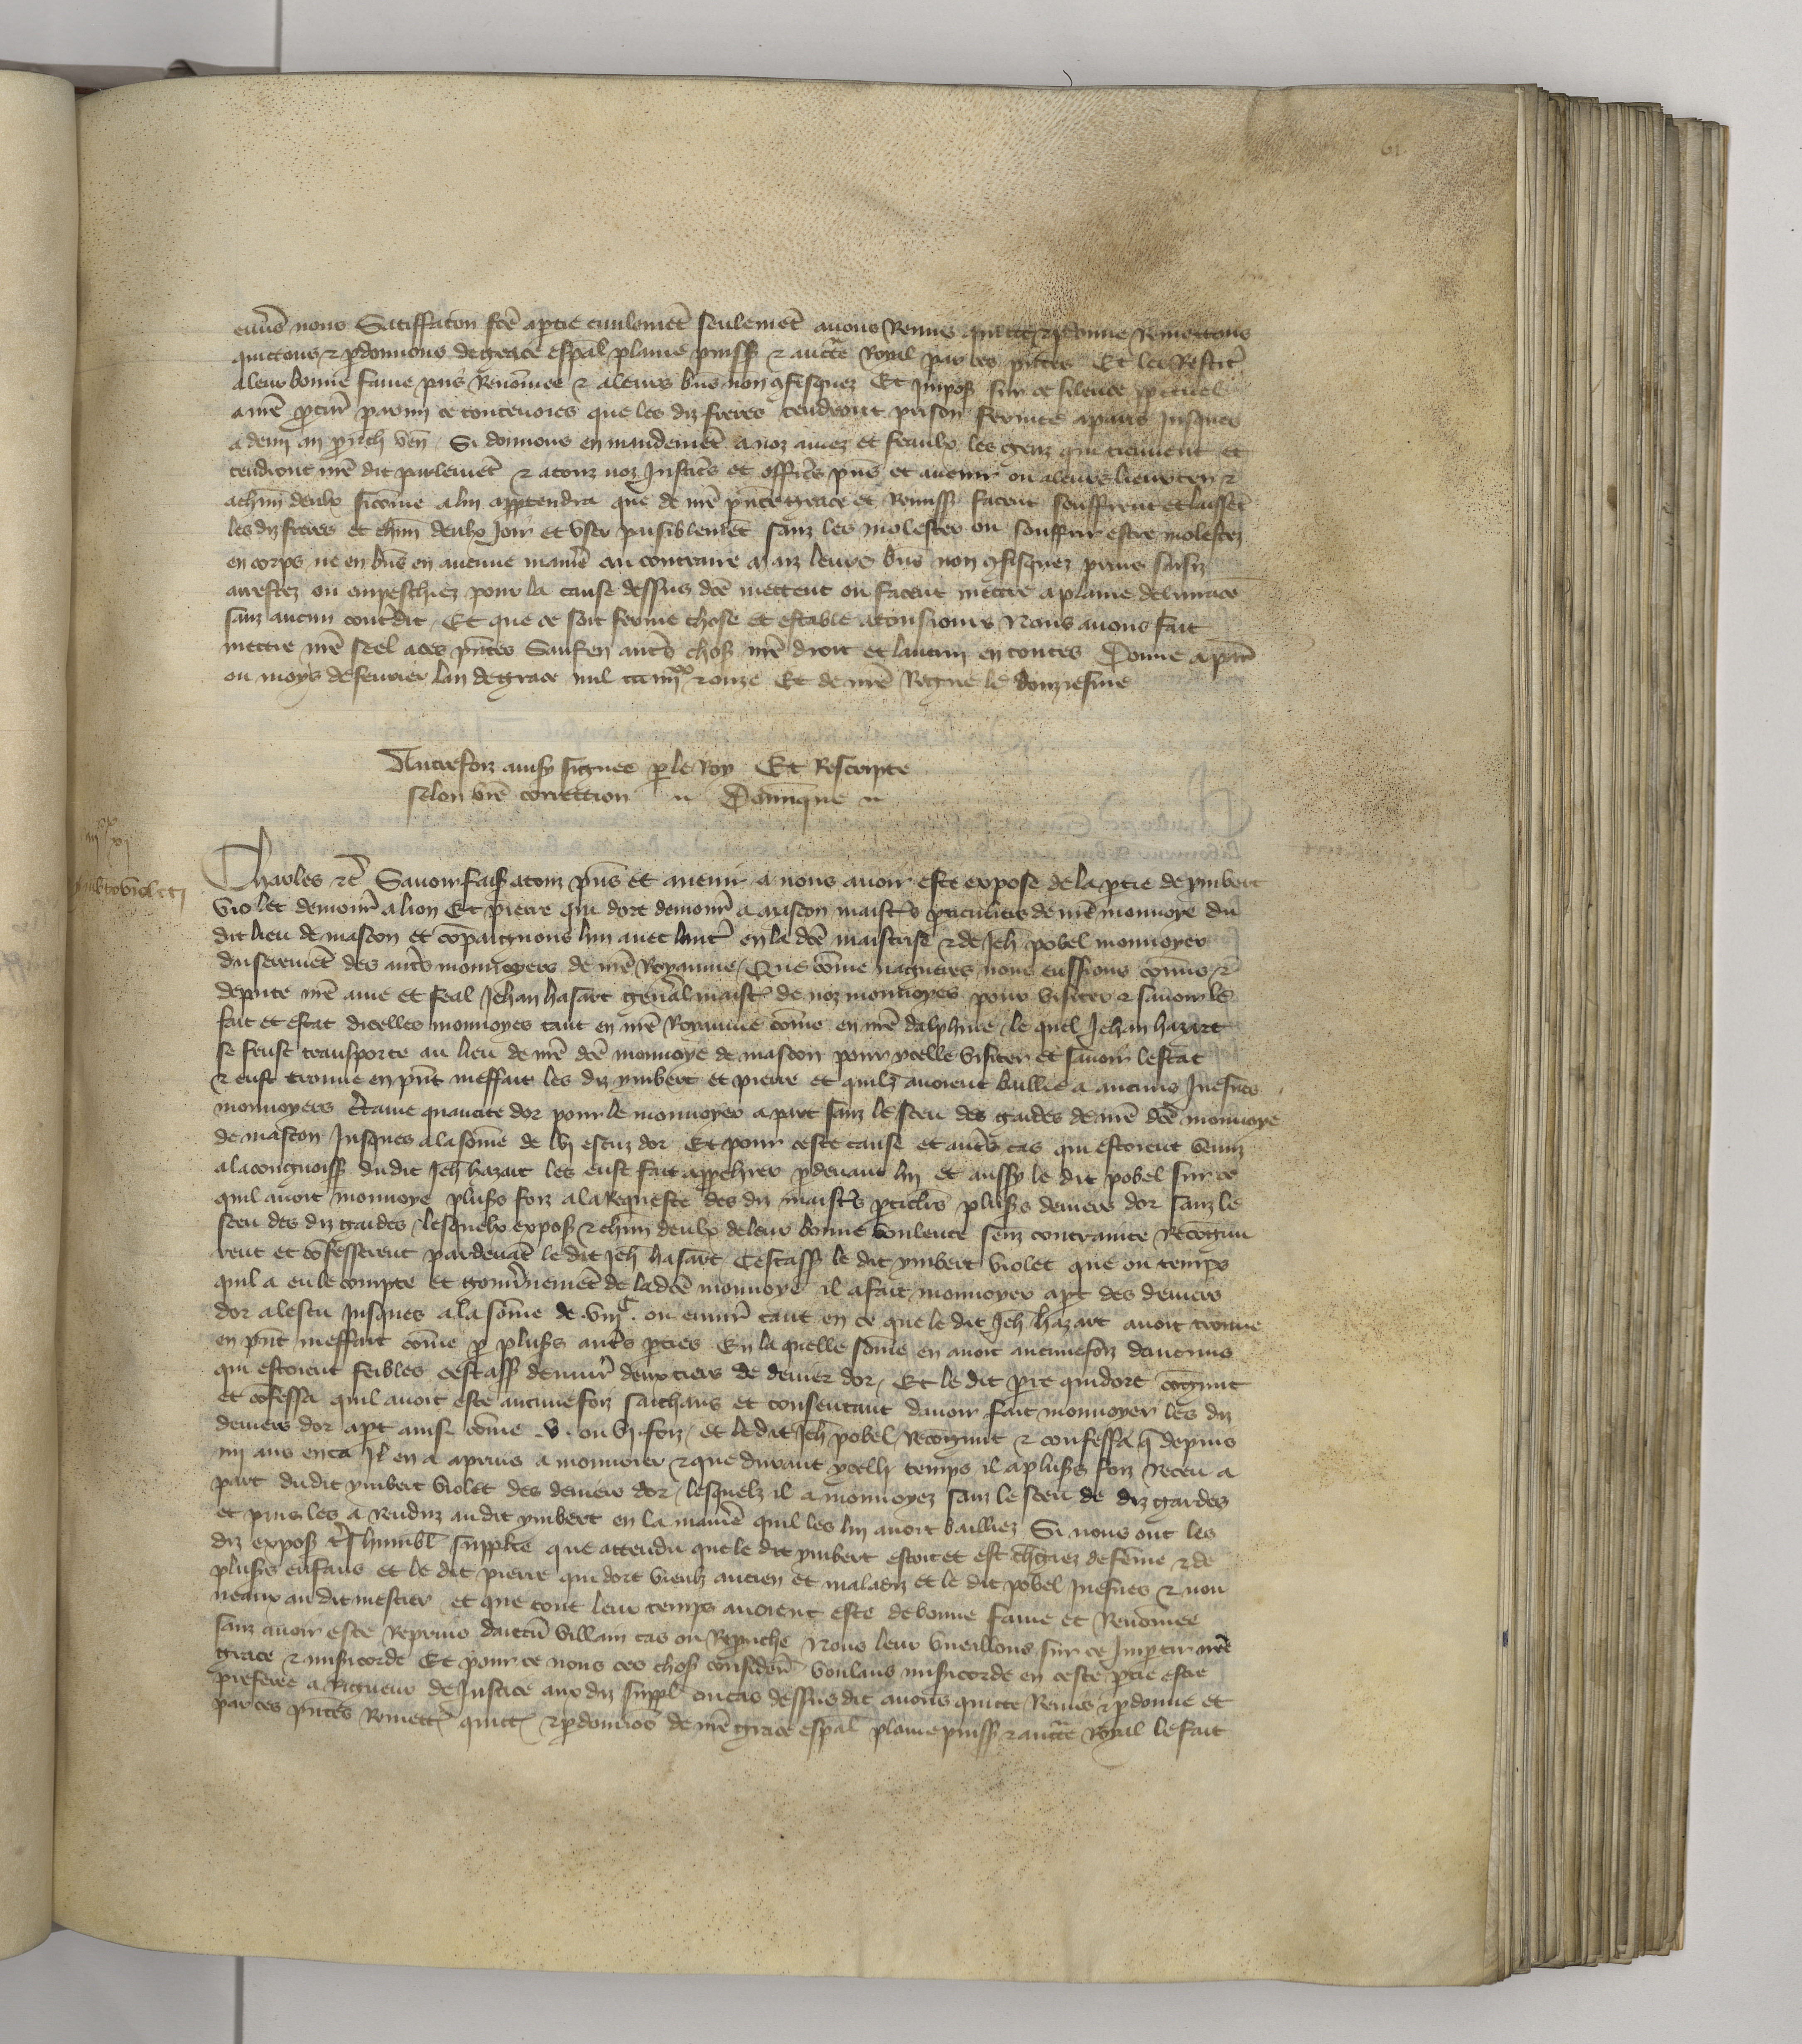 61
enu͛s nous Satiffacon fc̄e a ptie ciuilemēt seulemēt auons Remis quicte & pdonne Remectons
quictons & pdonnons de grace esp̄al plaine puiss & auct̄e Royal par ces p̄ntes Et les Restit͛
a leur bonne fame pais Renōmee & a leurs b̄ns non ꝯfisquez Et Imposs sur ce silence ppetuel
a nr̄e pcur͛ parmy ce toutesuoies que les diz freres tendront prison fermee a paris Jusques
a demy an pouch ven͛ Si donnons en mandemēt a noz amez et feaulx les genz qui tiennent et
tendront nr̄e dit parlemēt & a touz noz Justic̄s et offic̄s p̄ns et auenir ou a leurs lieuxten &
a ch̄un deulx sicōme a luy appartendra que de nr̄e p̄nte grace et Remiss facent seuffrent et laissēt
les diz freres et ch̄un deulx Joir et vser paisiblemēt sanz les molester ou souffrir estre molestez
en corps ne en b̄ns en aucune manie͛ au contraire maiz leurs b̄ns non ꝯfisquez prins saisiz
arrestez ou empeschiez pour la cause dessus dc̄e mettent ou facent mettre a plaine deliurāce
sanz aucun contredit Et que ce soit ferme chose et estable a tousiours Nous auons fait
mettre nr̄e seel a ces p̄ntes Sauf en aut͛s choss nr̄e droit et lautruy en toutes Donne a par͛
ou moys de feurier lan de grace mil ccc iiij^xx & onze Et de nr̄e Regne le douziesme
Autrefoiz ainsy signee p le Roy Et Rescripte
selon vr̄e correction .. Domiq̄ue ..
iiij^xx xj
ymberto violeti
Charles &c̄ Sauoir faiss a touz p̄ns et auenir a nous auoir este expose de la ptie de ymbert
violet demour͛ a lion Et pierre qui dort demour͛ a mascon maist͛s pticuliers de nr̄e monnoye du
dit lieu de mascon et cōpaignons lun auec laut͛ en la dc̄e maistrise & de Jeh̄ pobel monnoyer
du seremēt des aut͛s monnoyers de nr̄e Royaume Que cōme nagueres nous eussions cōmis &
depute nr̄e ame et feal Jehan hasart gen̄al maist͛ de noz monnoyes pour visiter & sauoir le
fait et estat dicelles monnoyes tant en nr̄e Royaume cōme en nr̄e dalphine le quel Jehan hazart
se feust transporte au lieu de nr̄e dc̄e monnoye de mascon pour ycelle visiter et sauoir lestat
& eust trouue en p̄nt meffait les diz ymbert et pierre et quilz auoient baillie a aucuns Juesnes
monnoyers c͛taine quantite dor pour le monnoyer a part sanz le sceu des gardes de nr̄e dc̄e monnoye
de mascon Jusques a la sōme de lvj escuz dor Et pour ceste cause et aut͛s cas qui estoient venuz
a la congnoiss du dit Jeh̄ hazart les eust fait app̄ehēder p deuant luy et aussy le dit pobel sur ce
quil auoit monnoye pluss͛s foiz a la Requeste des diz maist͛s pticul͛s pluss͛s deniers dor sanz le
sceu des diz gardes lesquelx exposs & ch̄un deulx de leur bonne voulente senz contrainte Recongnu
rent et cōfesserent pardeuāt le dit Jeh̄ hasart Cestass le dit ymbert violet que ou temps
quil a eu le compte et gouu͛nemēt de la dc̄e monnoye il a fait monnoyer a pt des deniers
dor a lescu Jusques a la sōme de viij^c ou enuir͛ tant en ce que le dit Jeh̄ hazart auoit trouue
en p̄nt meffait cōme p pluss͛s aut͛s pties En la quelle sōme en auoit aucunefoiz daucuns
qui estoient feibles cestass denuir͛ deux tiers de denier dor Et le dit p͛re qui dort cōgnut
et cōfessa quil auoit este aucunefoiz saichans et consentant dauoir fait monnoyer les diz
deniers dor a pt ainsi cōme .v. ou vj foiz et le dit Jeh̄ pobel Recōgnut & confessa q̄ depuis
iij ans enca Il en a apriins a monnoier & que durant ycelli temps il a pluss͛s foiz Receu a
part du dit ymbert violet des deniers dor lesquelz il a monnoyez sanz le sceu de diz gardes
et puis les a Renduz au dit ymbert en la manie͛ quil les luy auoit bailliez Si nous ont les
diz exposs t͛s humblt supplie que attendu que le dit ymbert estoit et est ch̄giez de fēme & de
pluss͛s enfans et le dit pierre qui dort vieulz ancien et maladiz et le dit pobel Juesnes & nou
ueaux au dit mestier et que tout leur temps auoient este de bonne fame et Renōmee
sanz auoir este Reprins dauc̄u villain cas ou Reproche Nous leur vueillons sur ce Imptir nr̄e
grace & misicorde Et pour ce nous ces choss considere͛ voulans misicorde en ceste ptie estre
preferee a Rigueur de Justice aux diz suppl ou cas dessus dit auons quicte Remis & pdonne et
par ces p̄ntes Remett͛ quict͛ & pdonnōs de nr̄e grace esp̄al plaine puiss & auct̄e Royal le fait